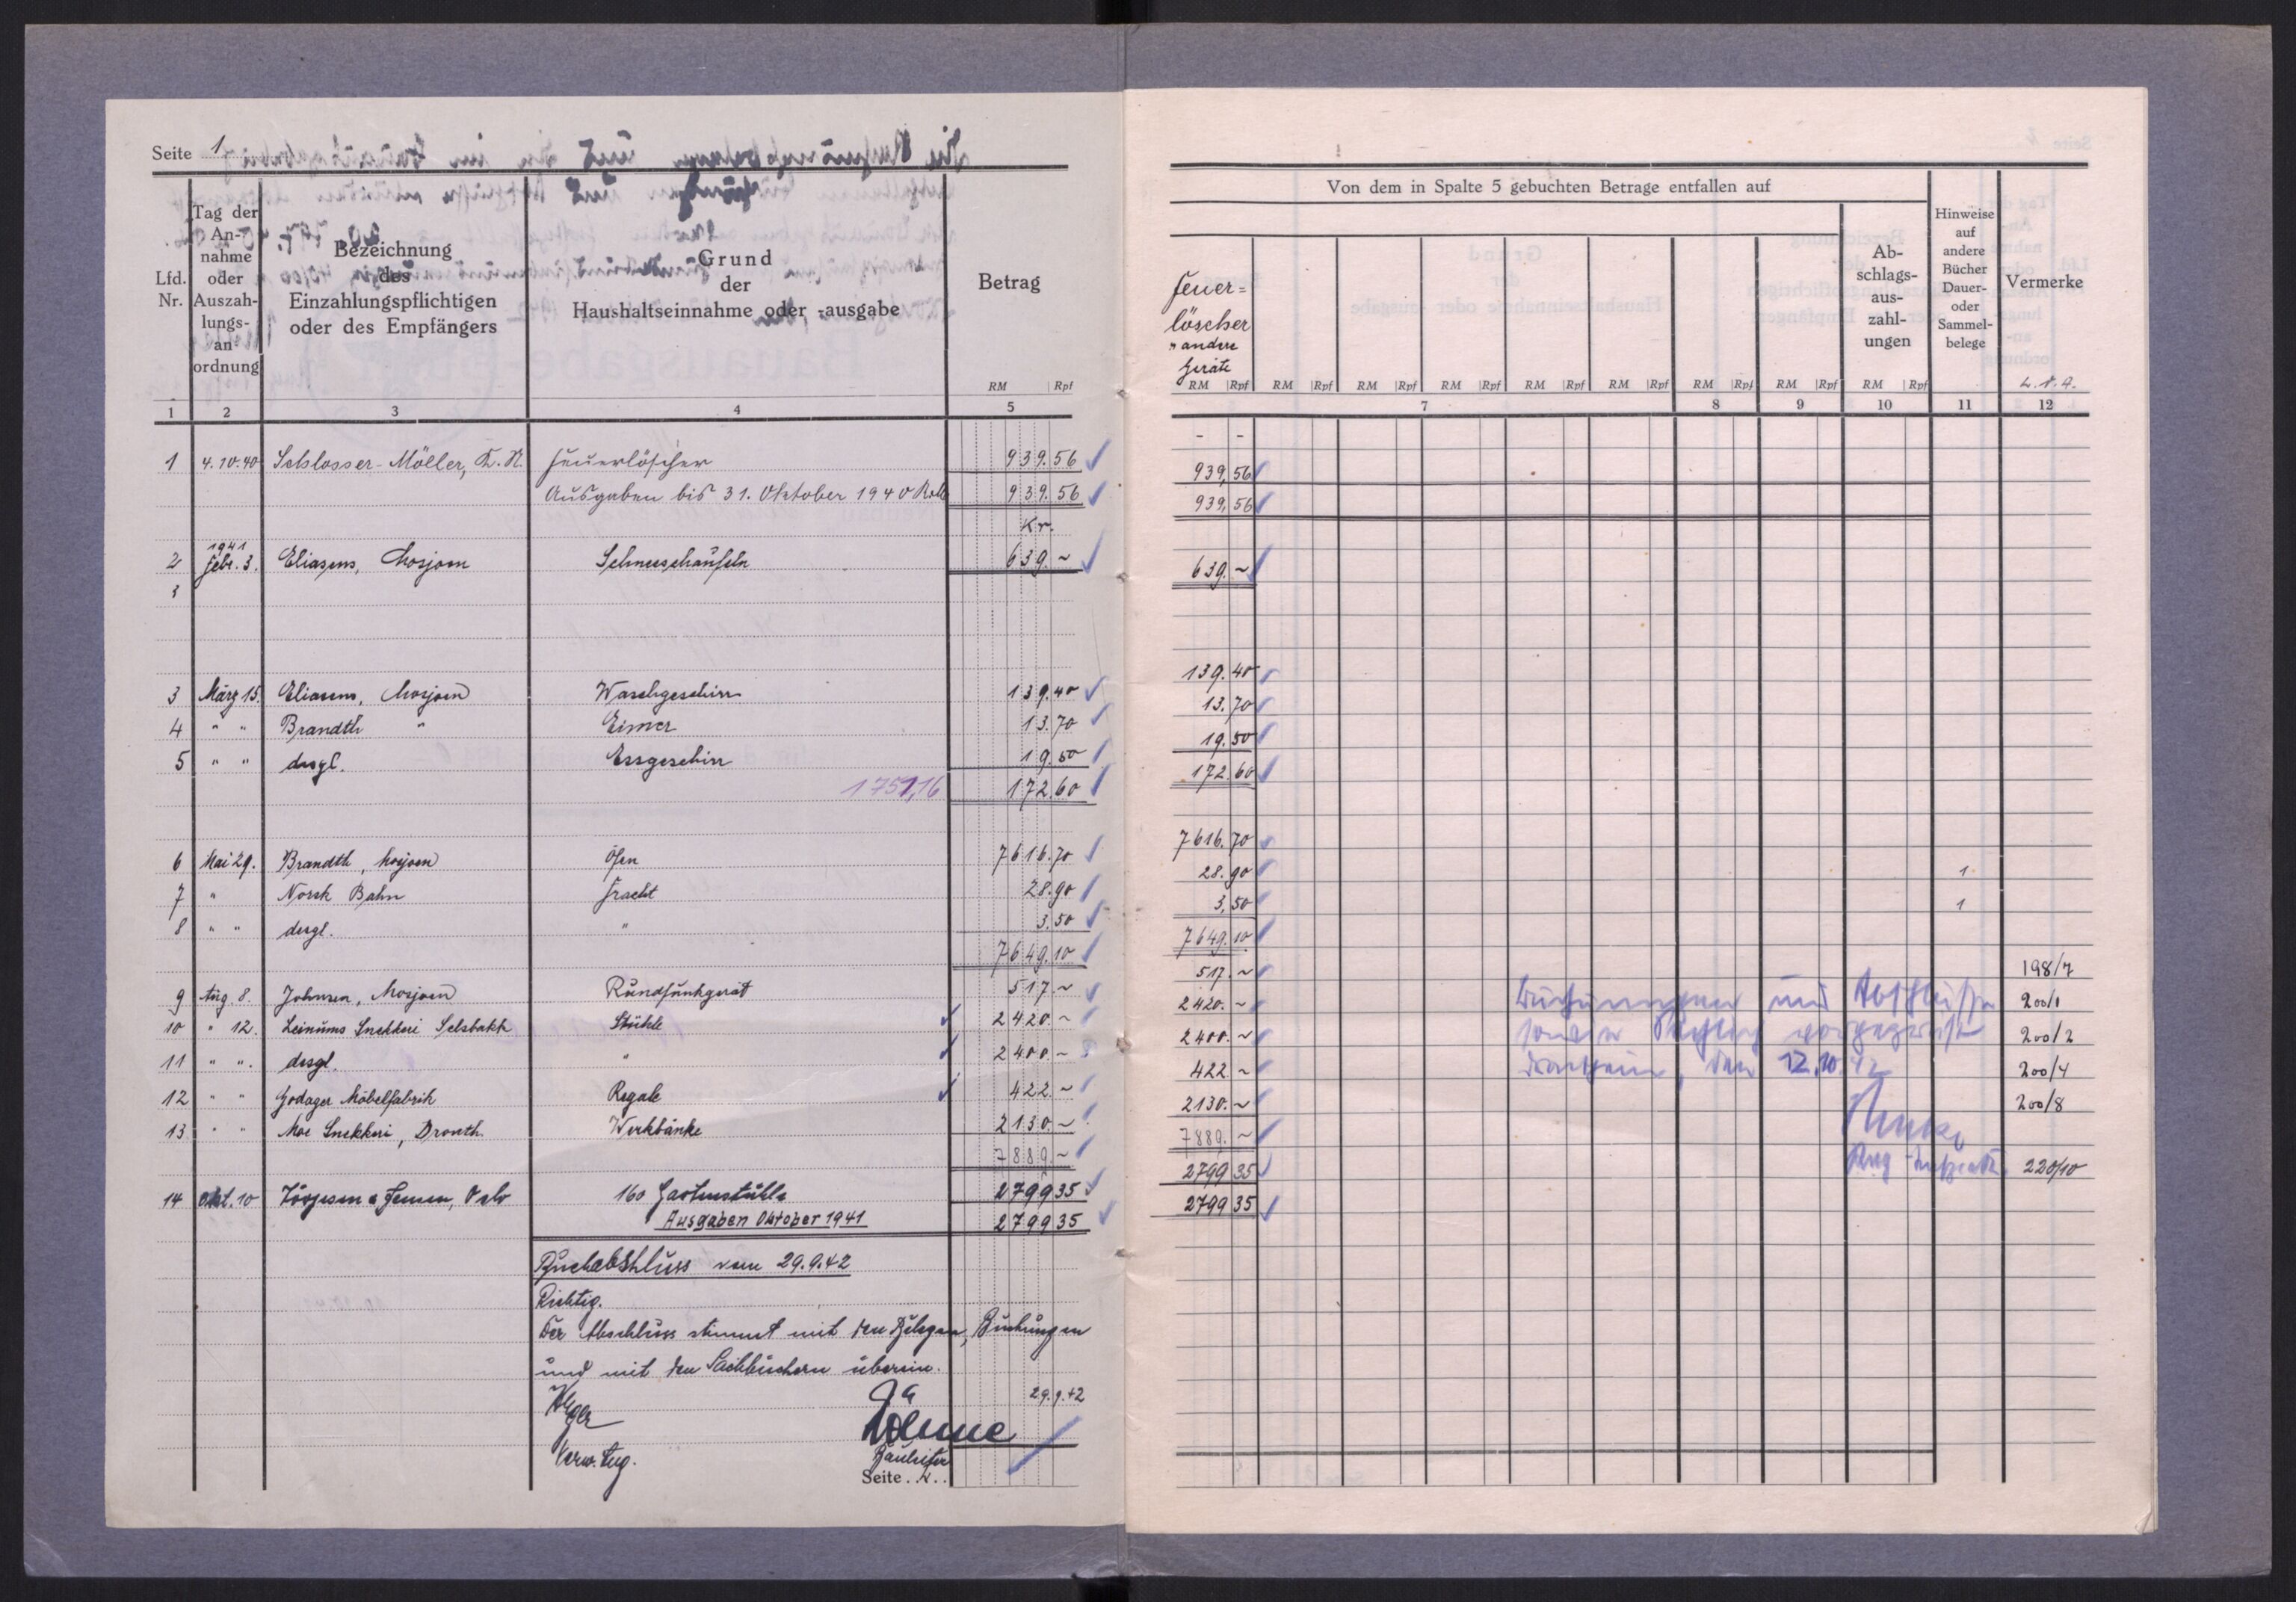 Seite 1
Lfd. Nr.
Tag der An-nahme oder Auszah-lungs-an-ordnung
Bezeichnung des Einzahlungspflichtigen oder des Empfängers
Grund der Haushaltseinnahme oder -ausgabe
Betrag
RM Rpf
1 2 3 4 5
1 4.10.40 Schlosser-Möller, K.N. Feuerlöscher 939.56
Ausgaben bis 31. Oktober 1940 939.56
Kr.
1941
2 Febr. 3. Eliasens, Mosjoen Schneeschaufeln 639.~
3
3 März 15. Eliasens, Mosjoen Waschgeschirr 139.40
4 " " Brandth " Eimer 13.70
5 " " desgl. Essgeschirr 19.50
1751,16 172.60
6 Mai 29. Brandth, Mosjoen Öfen 7616.70
7 " Norsk Bahn Fracht 28.90
8 " " desgl. " 3.50
7649.10
9 Aug. 8. Johnsen, Mosjoen Rundfunkgerät 517.~
10 " 12. Leinums Snekkeri Selsbakk Stühle 2420.~
11 " " desgl. " 2400.~
12 " " Godager Möbelfabrik Regale 422.~
13 " " Moe Snekkeri, Dronth. Werkbänke 2130.~
7889.~
14 Okt. 10 Jörgesen & Jensen, Oslo 160 Gartenstühle 2799 35
Ausgaben Oktober 1941 2799 35
Buchabschluss vom 29.9.42
Richtig.
Der Abschluss stimmt mit den Belegen, Buchungen
und mit den Sachbüchern überein.
29.9.42
Verw. Ang.
Bauleiter
Seite 2
Von dem in Spalte 5 gebuchten Betrage entfallen auf
Feuer=
löscher
" andere
Geräte
Ab-schlags-aus-zahl-ungen
Hinweise auf andere Bücher Dauer- oder Sammel-belege
Vermerke
RM Rpf RM Rpf RM Rpf RM Rpf RM Rpf RM Rpf RM Rpf RM Rpf RM Rpf
7 8 9 10 11 12
- -
939,56
939,56
639.~
139.40
13.70
19.50
172.60
7616.70
28.90 1
3,50 1
7649.10
517.~ 198/7
2420.~ 200/1
2400.~ 200/2
422.~ 200/4
2130.~ 200/8
7889.~
2799 35 220/10
2799 35
Buchungen und Abschlüsse
, den 12.10.42